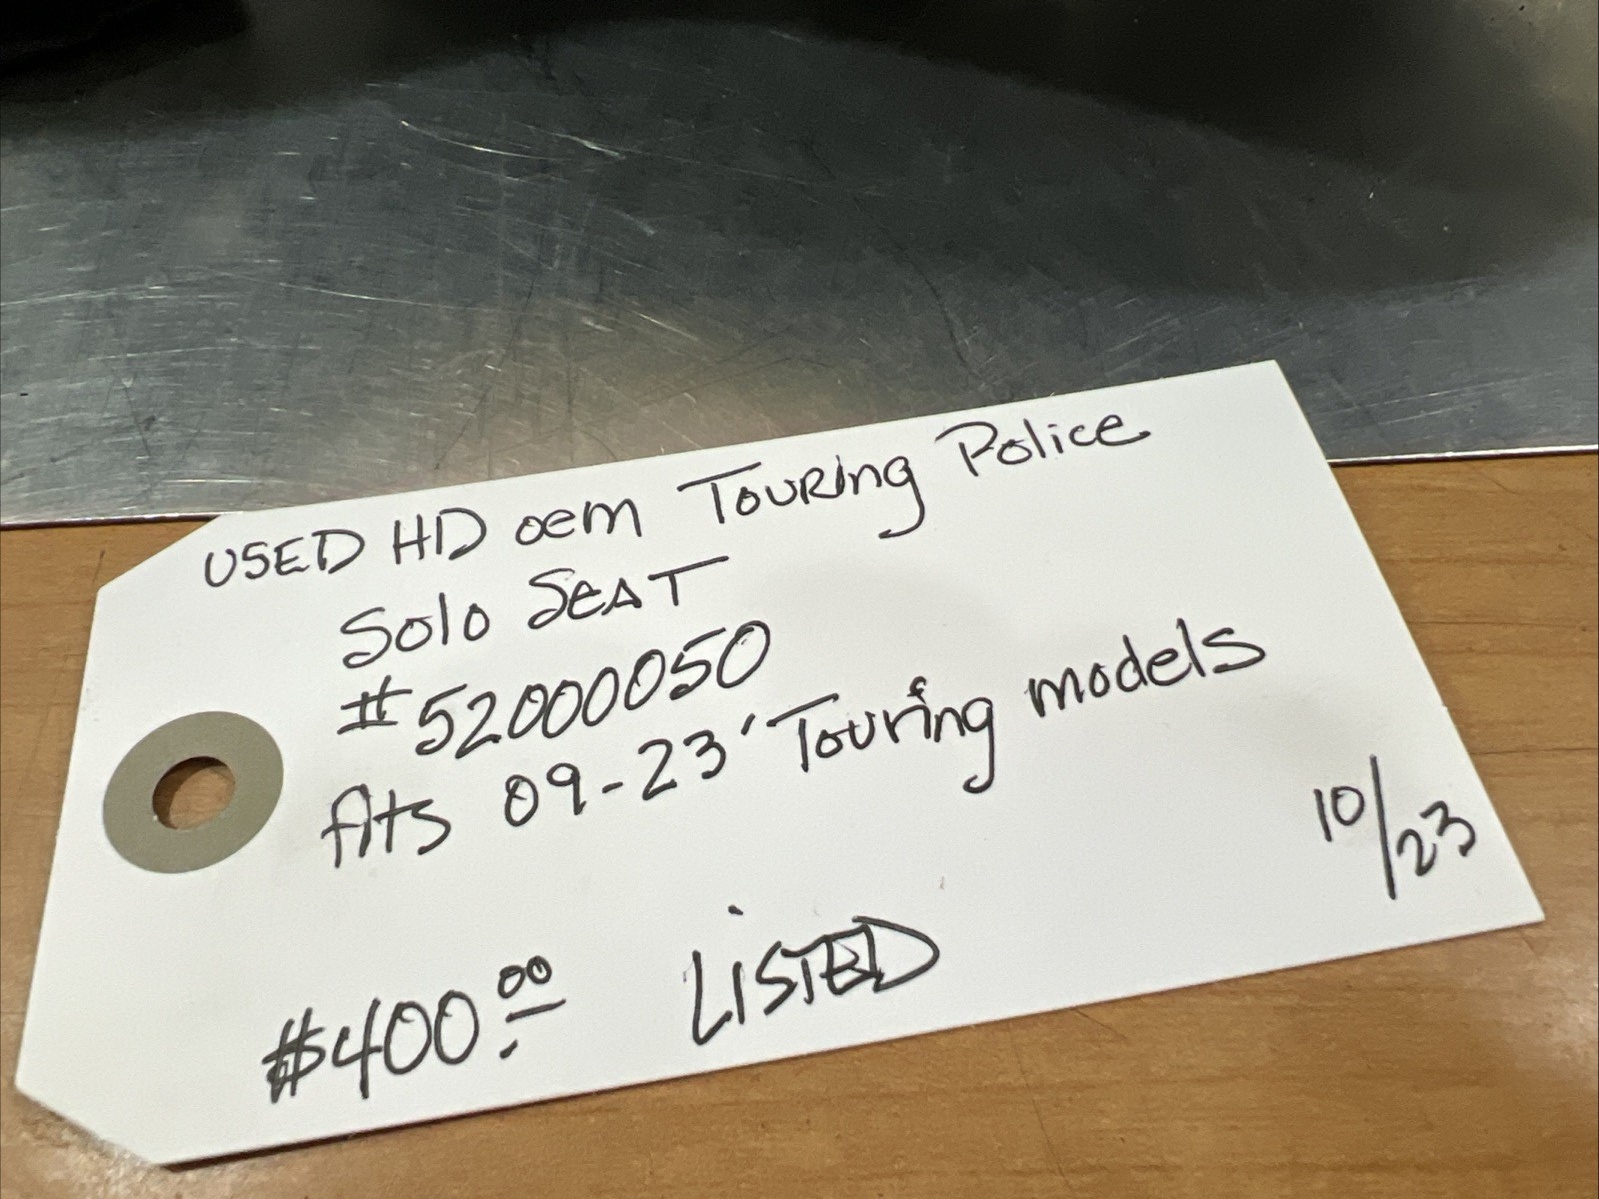 USED HD oem Touring Police
Solo SEAT
#52000050
fits 09-23' Touring models
10/23
$400.00 LISTED